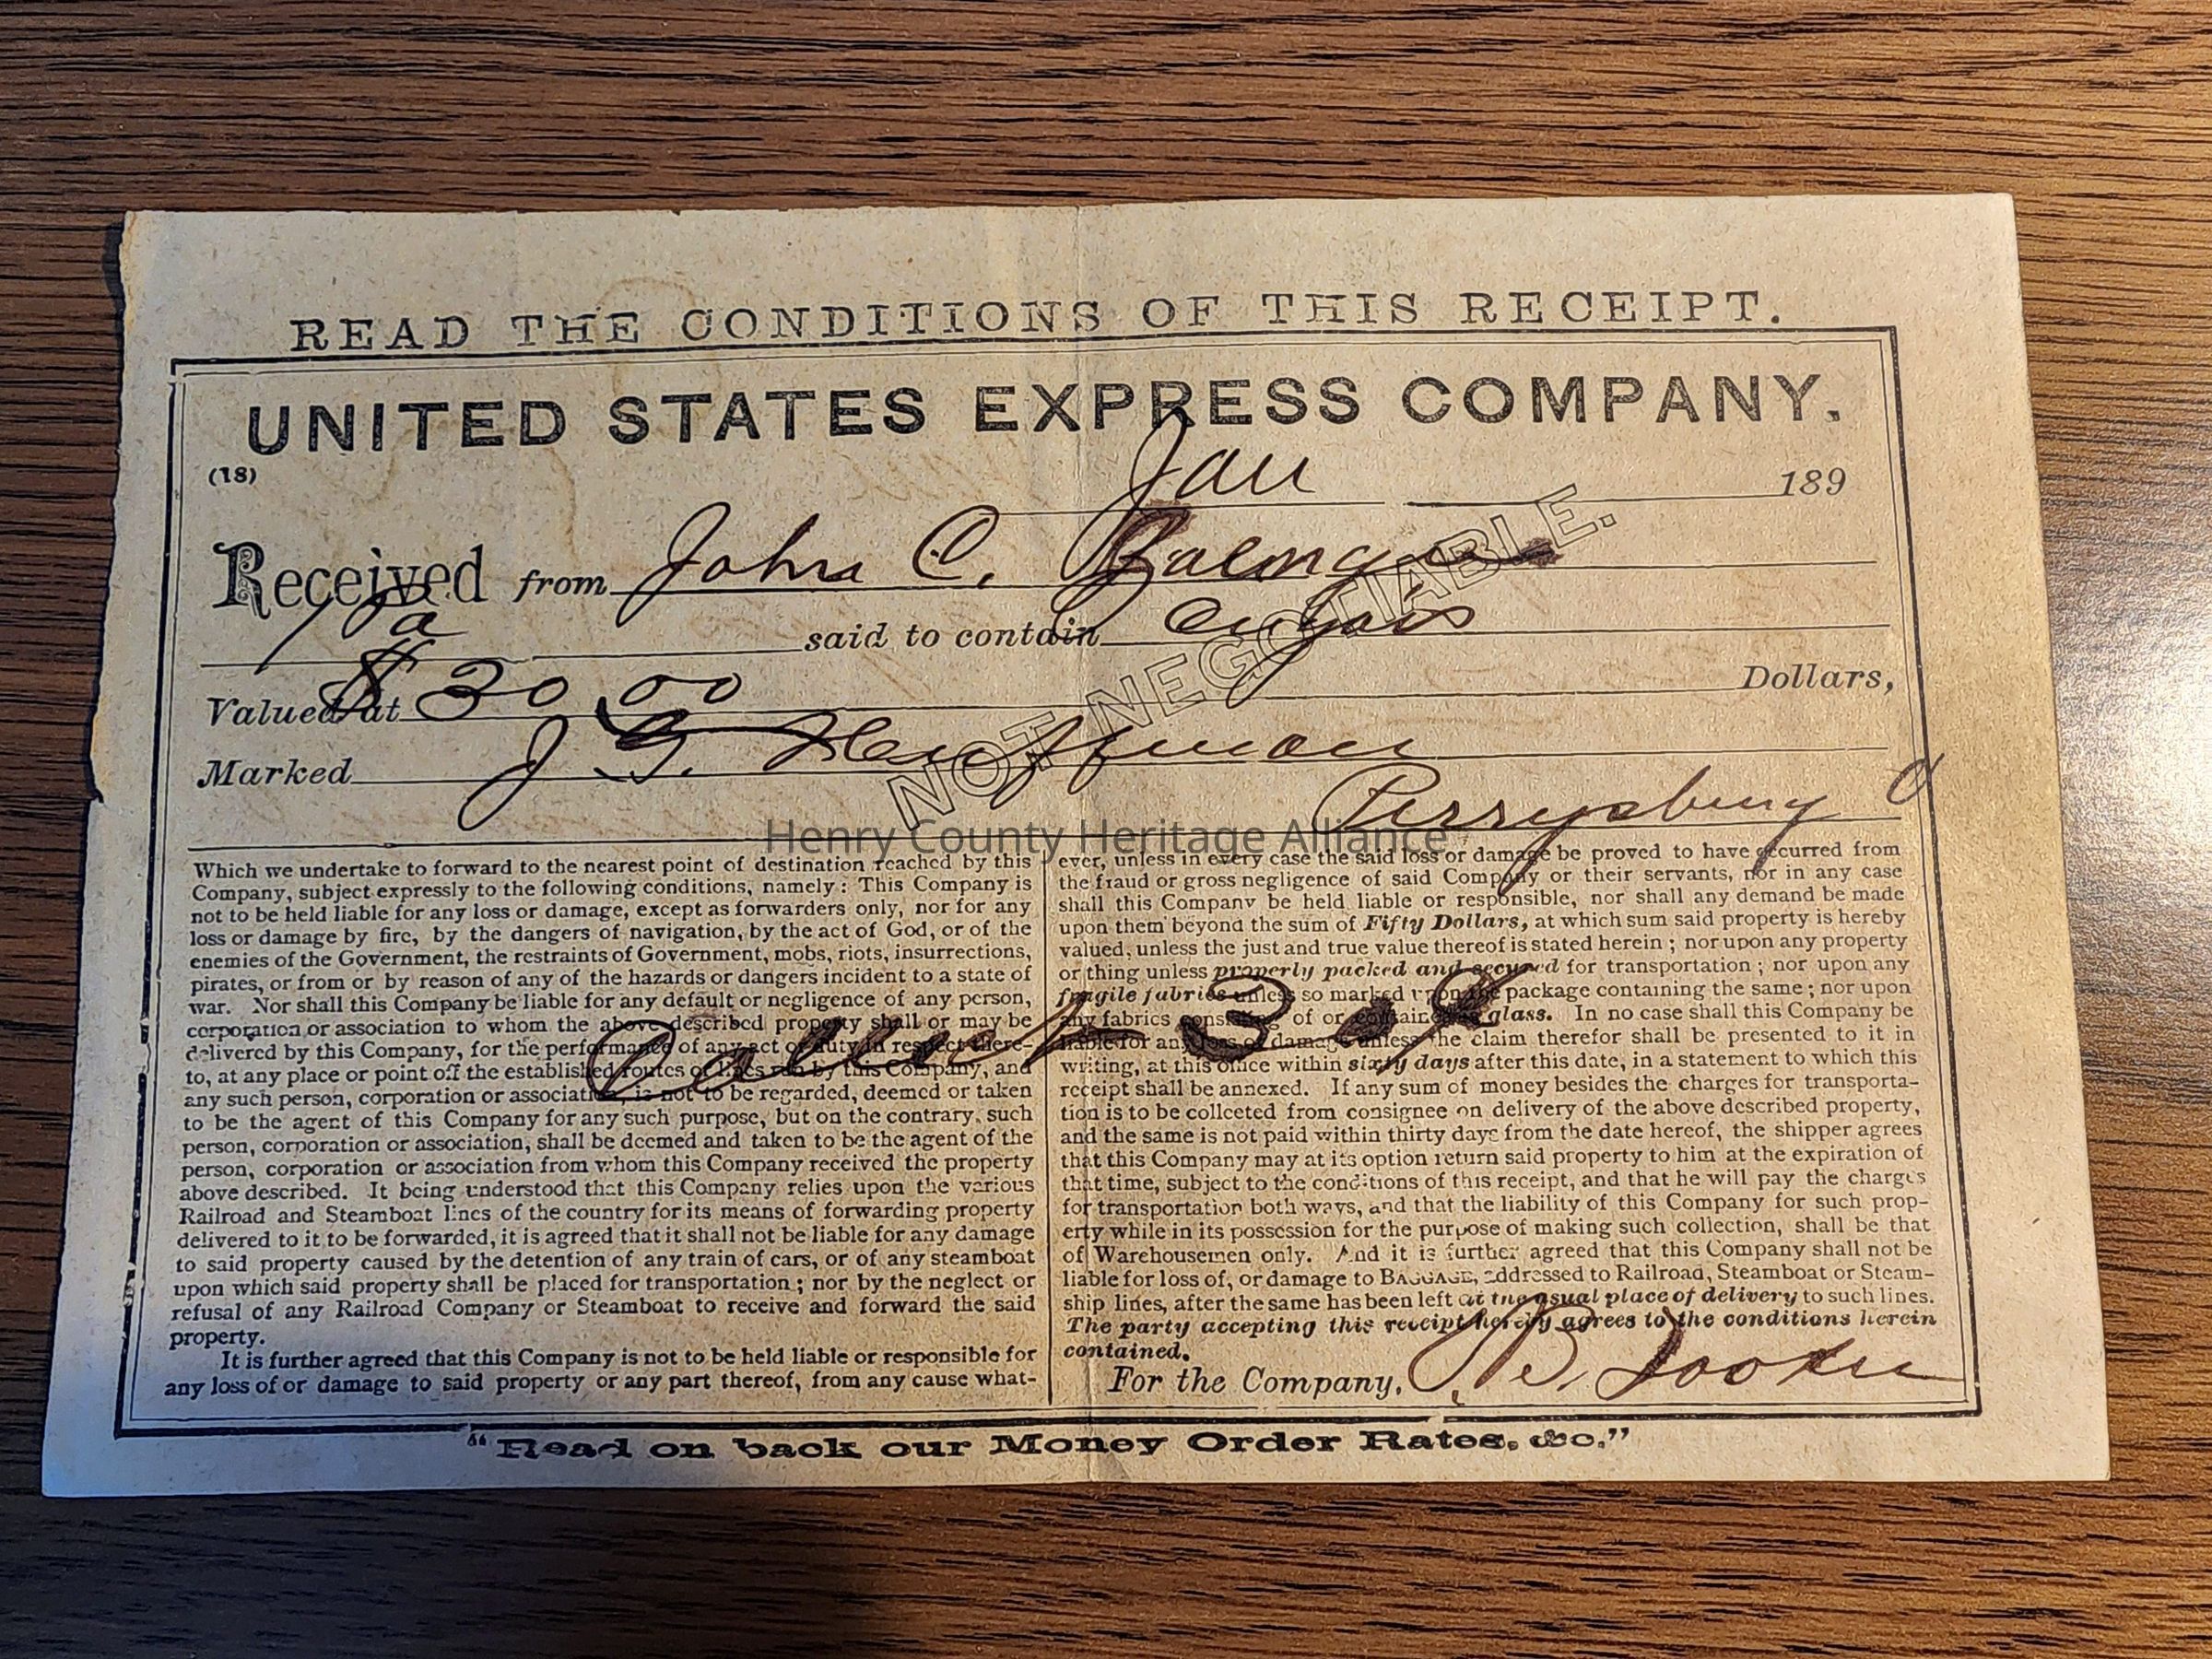 READ THE CONDITIONS OF THIS RECEIPT.
UNITED STATES EXPRESS COMPANY.
(18)
Jan 189
Received from John C.
said to contain
Valued at $30.00 Dollars,
Marked J G.
Perrysburg O
NOT NEGOTIABLE.
Henry County Heritage Alliance
Which we undertake to forward to the nearest point of destination reached by this
Company, subject expressly to the following conditions, namely: This Company is
not to be held liable for any loss or damage, except as forwarders only, nor for any
loss or damage by fire, by the dangers of navigation, by the act of God, or of the
enemies of the Government, the restraints of Government, mobs, riots, insurrections,
pirates, or from or by reason of any of the hazards or dangers incident to a state of
war. Nor shall this Company be liable for any default or negligence of any person,
corporation or association to whom the above described property shall or may be
delivered by this Company, for the performance of any act or duty in respect there-
to, at any place or point off the established routes or lines run by this Company, and
any such person, corporation or association, is not to be regarded, deemed or taken
to be the agent of this Company for any such purpose, but on the contrary, such
person, corporation or association, shall be deemed and taken to be the agent of the
person, corporation or association from whom this Company received the property
above described. It being understood that this Company relies upon the various
Railroad and Steamboat lines of the country for its means of forwarding property
delivered to it to be forwarded, it is agreed that it shall not be liable for any damage
to said property caused by the detention of any train of cars, or of any steamboat
upon which said property shall be placed for transportation; nor by the neglect or
refusal of any Railroad Company or Steamboat to receive and forward the said
property.
It is further agreed that this Company is not to be held liable or responsible for
any loss of or damage to said property or any part thereof, from any cause what-
ever, unless in every case the said loss or damage be proved to have occurred from
the fraud or gross negligence of said Company or their servants, nor in any case
shall this Company be held liable or responsible, nor shall any demand be made
upon them beyond the sum of Fifty Dollars, at which sum said property is hereby
valued, unless the just and true value thereof is stated herein; nor upon any property
or thing unless properly packed and secured for transportation; nor upon any
fragile fabrics unless so marked upon the package containing the same; nor upon
any fabrics consisting of or contained in glass. In no case shall this Company be
liable for any loss or damage unless the claim therefor shall be presented to it in
writing, at this office within sixty days after this date, in a statement to which this
receipt shall be annexed. If any sum of money besides the charges for transporta-
tion is to be collceted from consignee on delivery of the above described property,
and the same is not paid within thirty days from the date hereof, the shipper agrees
that this Company may at its option return said property to him at the expiration of
that time, subject to the conditions of this receipt, and that he will pay the charges
for transportation both ways, and that the liability of this Company for such prop-
erty while in its possession for the purpose of making such collection, shall be that
of Warehousemen only. And it is further agreed that this Company shall not be
liable for loss of, or damage to BAGGAGE, addressed to Railroad, Steamboat or Steam-
ship lines, after the same has been left at the usual place of delivery to such lines.
The party accepting this receipt hereby agrees to the conditions herein
contained.
Collect
For the Company,
"Read on back our Money Order Rates, &c."